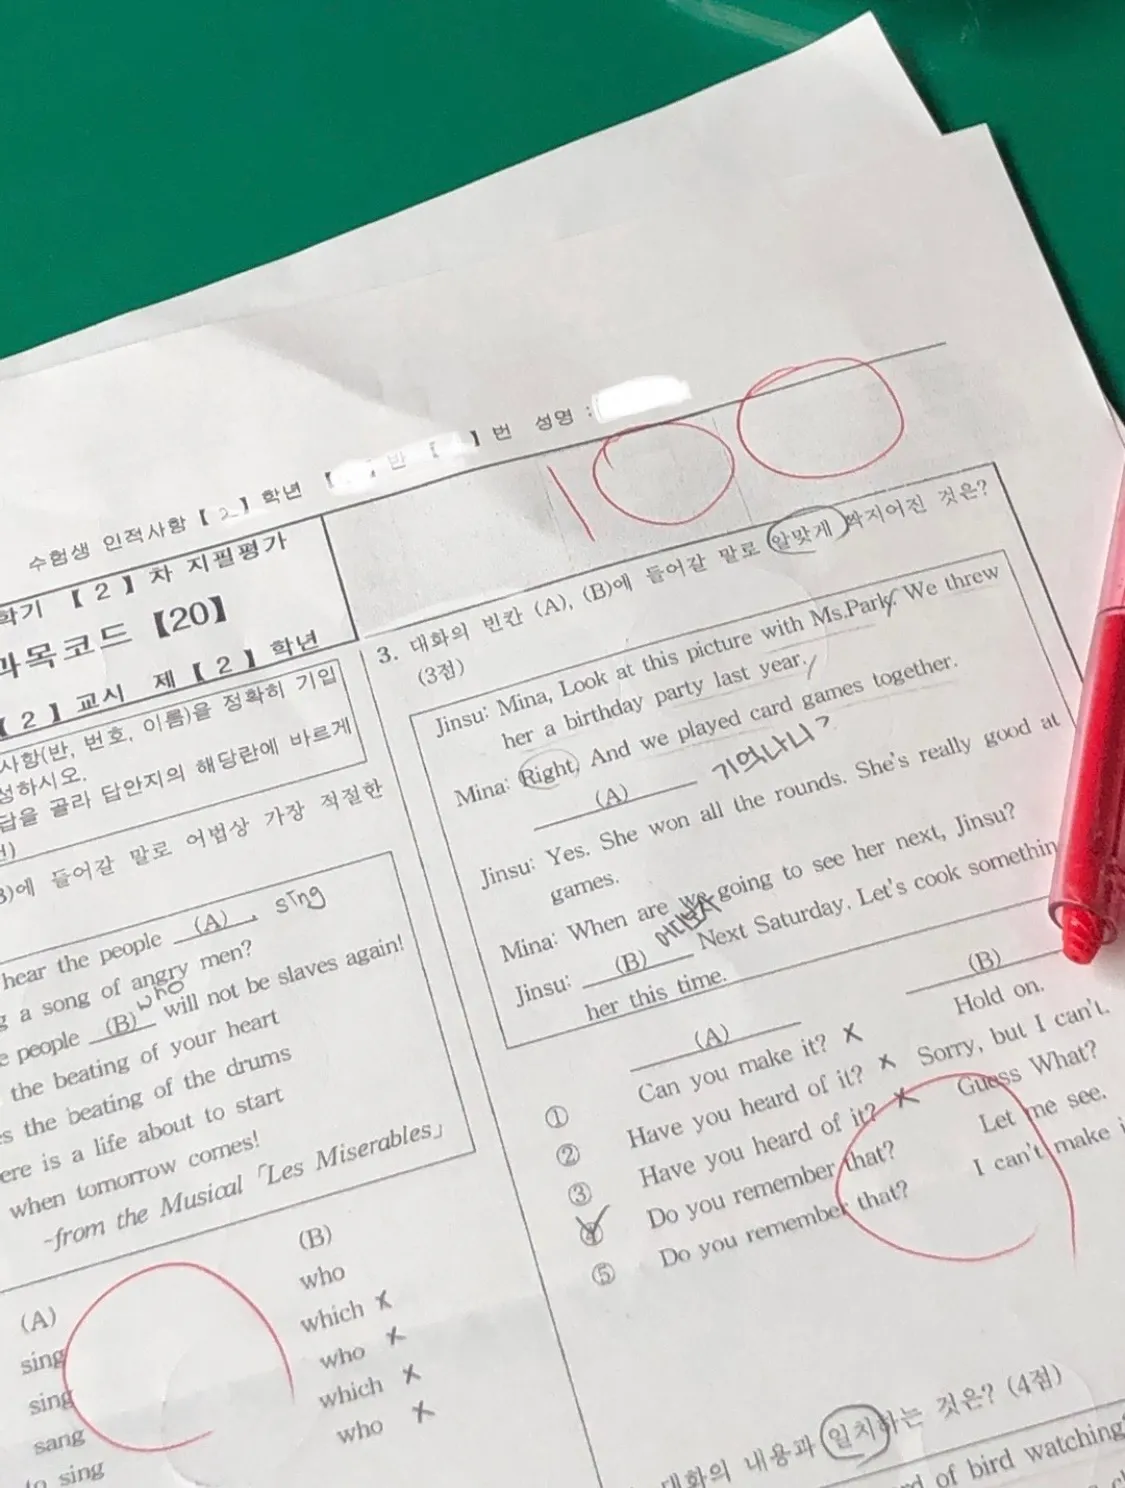 수험생 인적사항 【 2 】 학년 【 】 반 【 】 번 성명 :
100
학기 【 2 】 차 지필평가
과목코드 【20】
【 2 】 교시 제 【 2 】 학년
사항(반, 번호, 이름)을 정확히 기입
성하시오.
답을 골라 답안지의 해당란에 바르게
에 들어갈 말로 어법상 가장 적절한
hear the people (A). sing
a song of angry men?
people (B) who will not be slaves again!
the beating of your heart
the beating of the drums
ere is a life about to start
when tomorrow comes!
-from the Musical 「Les Miserables」
(A) (B)
sing who
sing which x
sang who x
to sing which x
who x
3. 대화의 빈칸 (A), (B)에 들어갈 말로 알맞게 짝지어진 것은?
(3점)
Jinsu: Mina, Look at this picture with Ms.Park. We threw
her a birthday party last year.
Mina: Right, And we played card games together.
(A) 기억나니?
Jinsu: Yes. She won all the rounds. She's really good at
games.
Mina: When are we going to see her next, Jinsu?
Jinsu: (B) 어디보자 Next Saturday. Let's cook somethin
her this time.
(A) (B)
① Can you make it? x Hold on.
② Have you heard of it? x Sorry, but I can't.
③ Have you heard of it? x Guess What?
④ Do you remember that? Let me see.
⑤ Do you remember that? I can't make i
대화의 내용과 일치하는 것은? (4점)
of bird watching